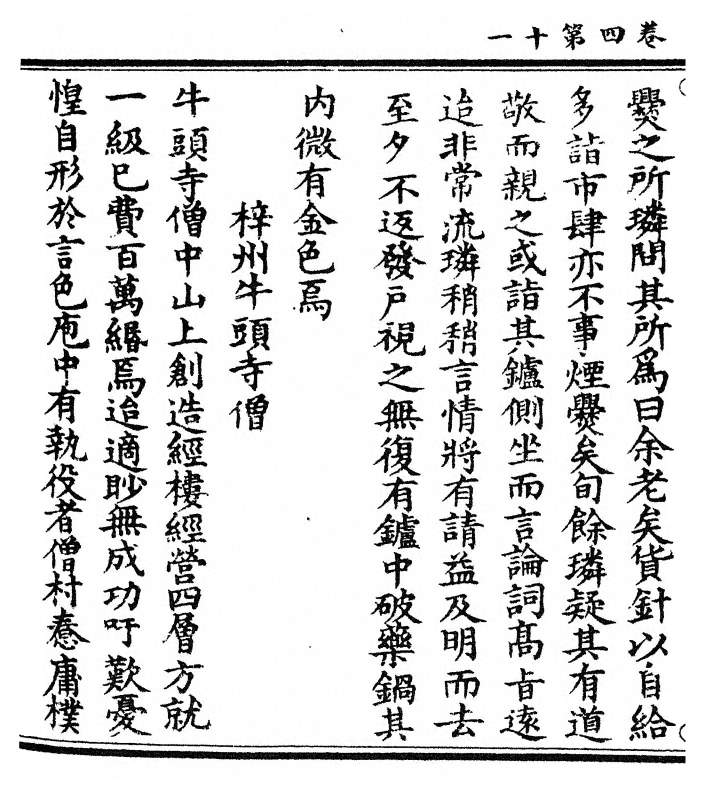 卷四第十一
爨之所璘問其所爲曰余老矣貨針以自給
多詣市肆亦不事煙爨矣旬餘璘疑其有道
敬而親之或詣其鑪側坐而言論詞高旨遠
迨非常流璘稍稍言情將有請益及明而去
至夕不返發戶視之無復有鑪中破藥鍋其
内微有金色焉
梓州牛頭寺僧
牛頭寺僧中山上創造經樓經營四層方就
一級已費百萬緡焉迨適眇無成功吁歎憂
惶自形於言色庖中有執役者僧村憃庸樸